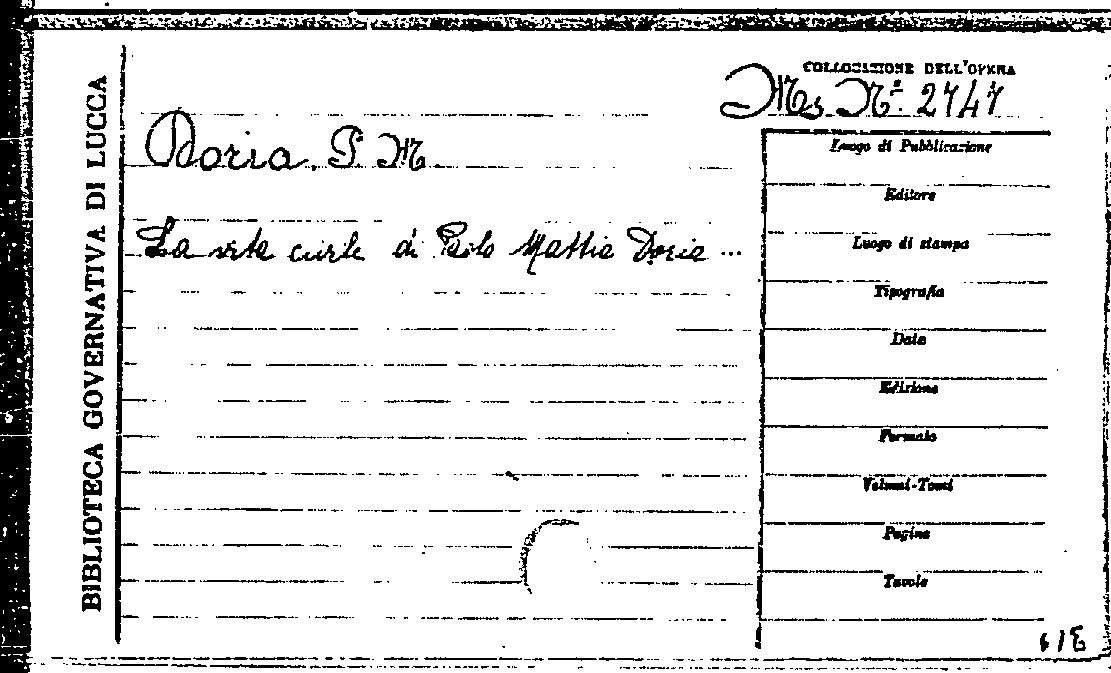 BIBLIOTECA GOVERNATIVA DI LUCCA
COLLOCAZIONE DELL'OPERA
Ms. N.º 2747
Doria, P. M.
La vita civile di Paolo Mattia Doria ...
Luogo di Pubblicazione
Editore
Luogo di stampa
Tipografia
Data
Edizione
Formato
Volumi-Tomi
Pagine
Tavole